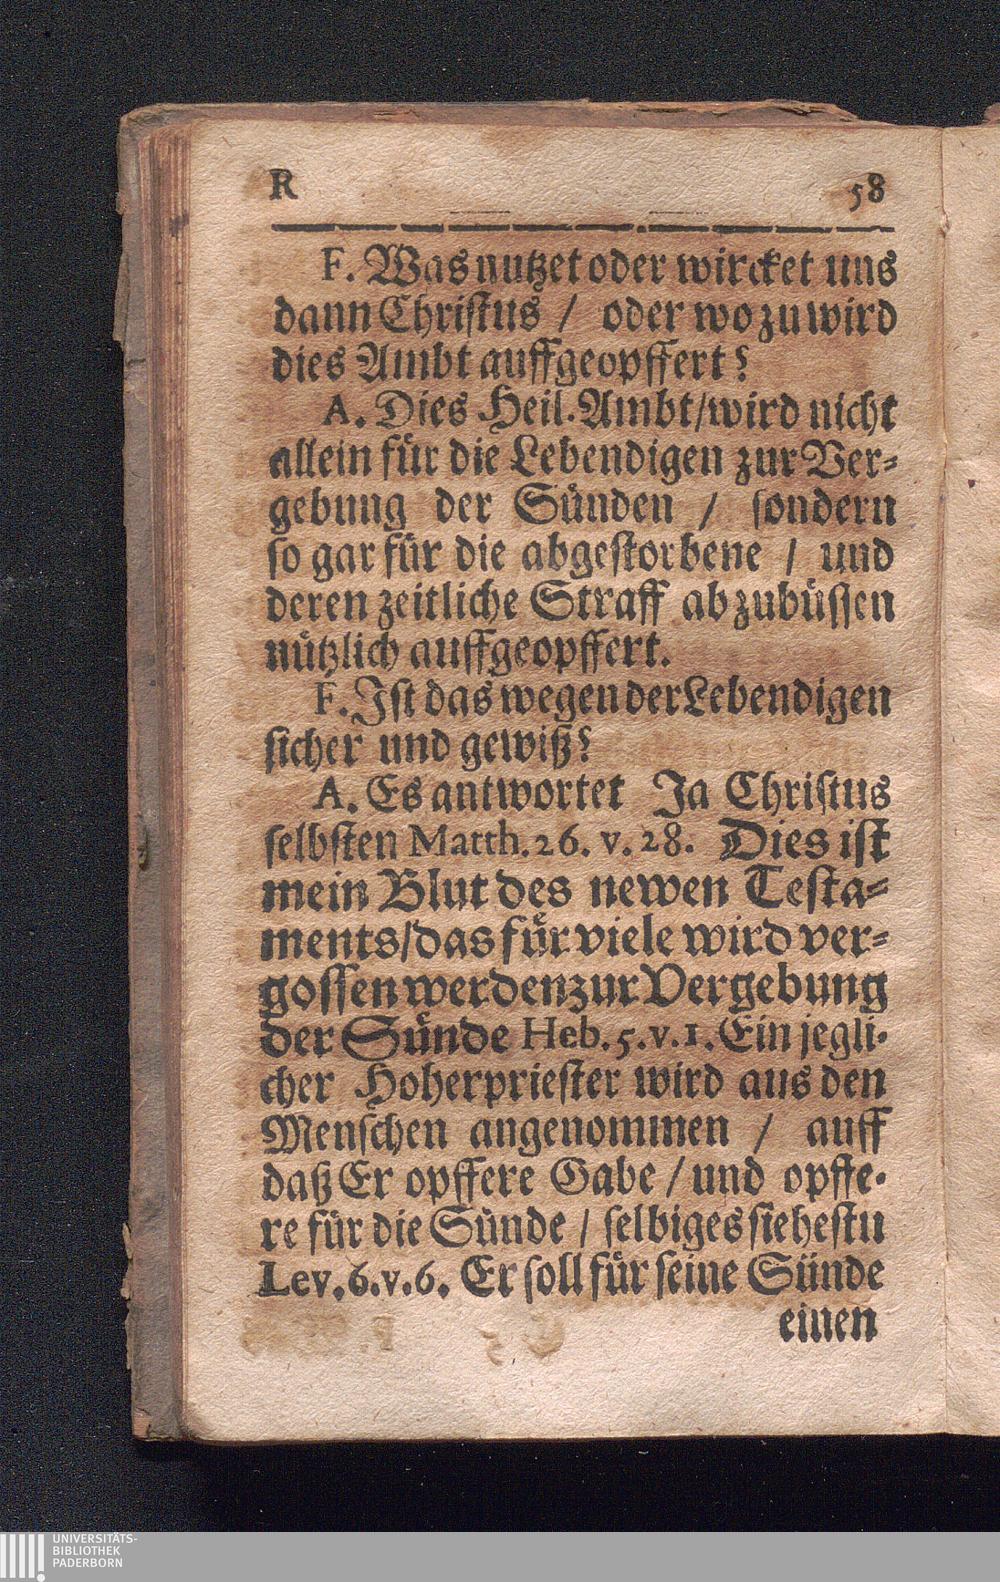 R 58
F. Was nutzet oder wircket uns
dann Christus / oder wozu wird
dies Ambt auffgeopffert?
A. Dies Heil. Ambt / wird nicht
allein für die Lebendigen zur Ver-
gebung der Sünden / sondern
so gar für die abgestorbene / und
deren zeitliche Straff abzubüssen
nützlich auffgeopffert.
F. Ist das wegen der Lebendigen
sicher und gewiß?
A. Es antwortet Ja Christus
selbsten Matth. 26. v. 28. Dies ist
mein Blut des newen Testa-
ments / das für viele wird ver-
gossen werden zur Vergebung
der Sünde Heb. 5. v. 1. Ein jegli-
cher Hoherpriester wird aus den
Menschen angenommen / auff
daß Er opffere Gabe / und opffe-
re für die Sünde / selbiges siehestu
Lev. 6. v. 6. Er soll für seine Sünde
einen
UNIVERSITÄTS-
BIBLIOTHEK
PADERBORN